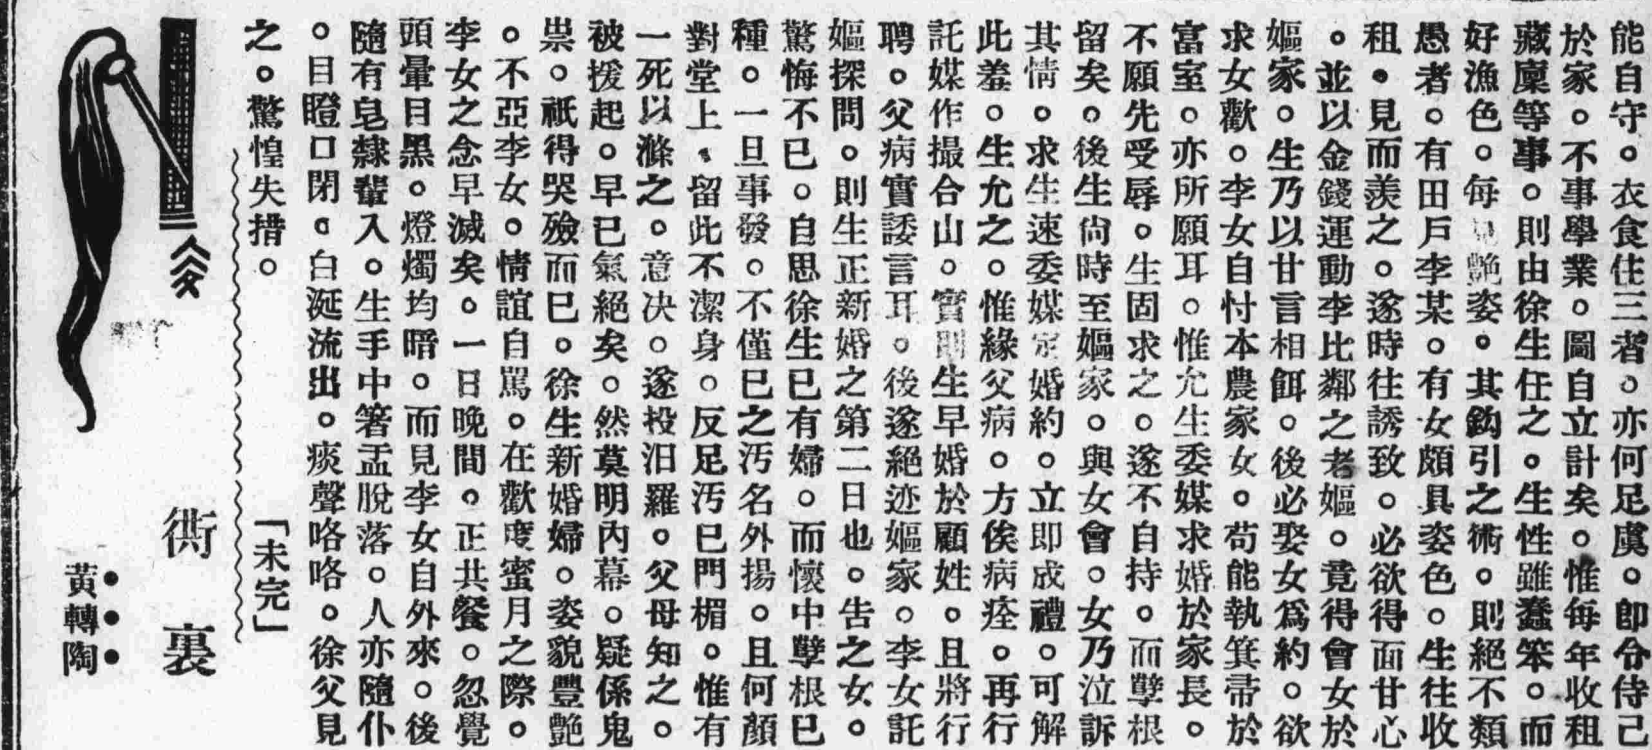 能自守。衣食住三者。亦何足虞。卽令侍己
於家。不事學業。圖自立計矣。惟每年收租
藏廩等事。則由徐生任之。生性雖蠢笨。而
好漁色。每見艶姿。其鈎引之術。則絕不類
愚者。有田戶李某。有女頗具姿色。生往收
租。見而羨之。遂時往誘致。必欲得面甘心
。並以金錢運動李比鄰之老嫗。竟得會女於
嫗家。生乃以甘言相餌。後必娶女爲約。欲
求女歡。李女自忖本農家女。苟能執箕帚於
富室。亦所願耳。惟允生委媒求婚於家長。
不願先受辱。生固求之。遂不自持。而孽根
留矣。後生尙時至嫗家。與女會。女乃泣訴
其情。求生速委媒定婚約。立即成禮。可解
此羞。生允之。惟緣父病。方俟病痊。再行
託媒作撮合山。實則生早婚於顧姓。且將行
聘。父病實諉言耳。後遂絕迹嫗家。李女託
嫗探問。則生正新婚之第二日也。吿之女。
驚悔不已。自思徐生已有婦。而懷中孽根已
種。一旦事發。不僅已之汚名外揚。且何顏
對堂上。留此不潔身。反足汚已門楣。惟有
一死以滌之。意决。遂投汨羅。父母知之。
被援起。早已氣絕矣。然莫明內幕。疑係鬼
祟。祇得哭殮而已。徐生新婚婦。姿貌豐艶
。不亞李女。情誼自駡。在歡度蜜月之際。
李女之念早滅矣。一日晚間。正共餐。忽覺
頭暈目黑。燈燭均暗。而見李女自外來。後
隨有皂隸輩入。生手中箸盂脫落。人亦隨仆
。目瞪口閉。白涎流出。痰聲咯咯。徐父見
之。驚惶失措。　「未完」
衖裏
黃轉陶